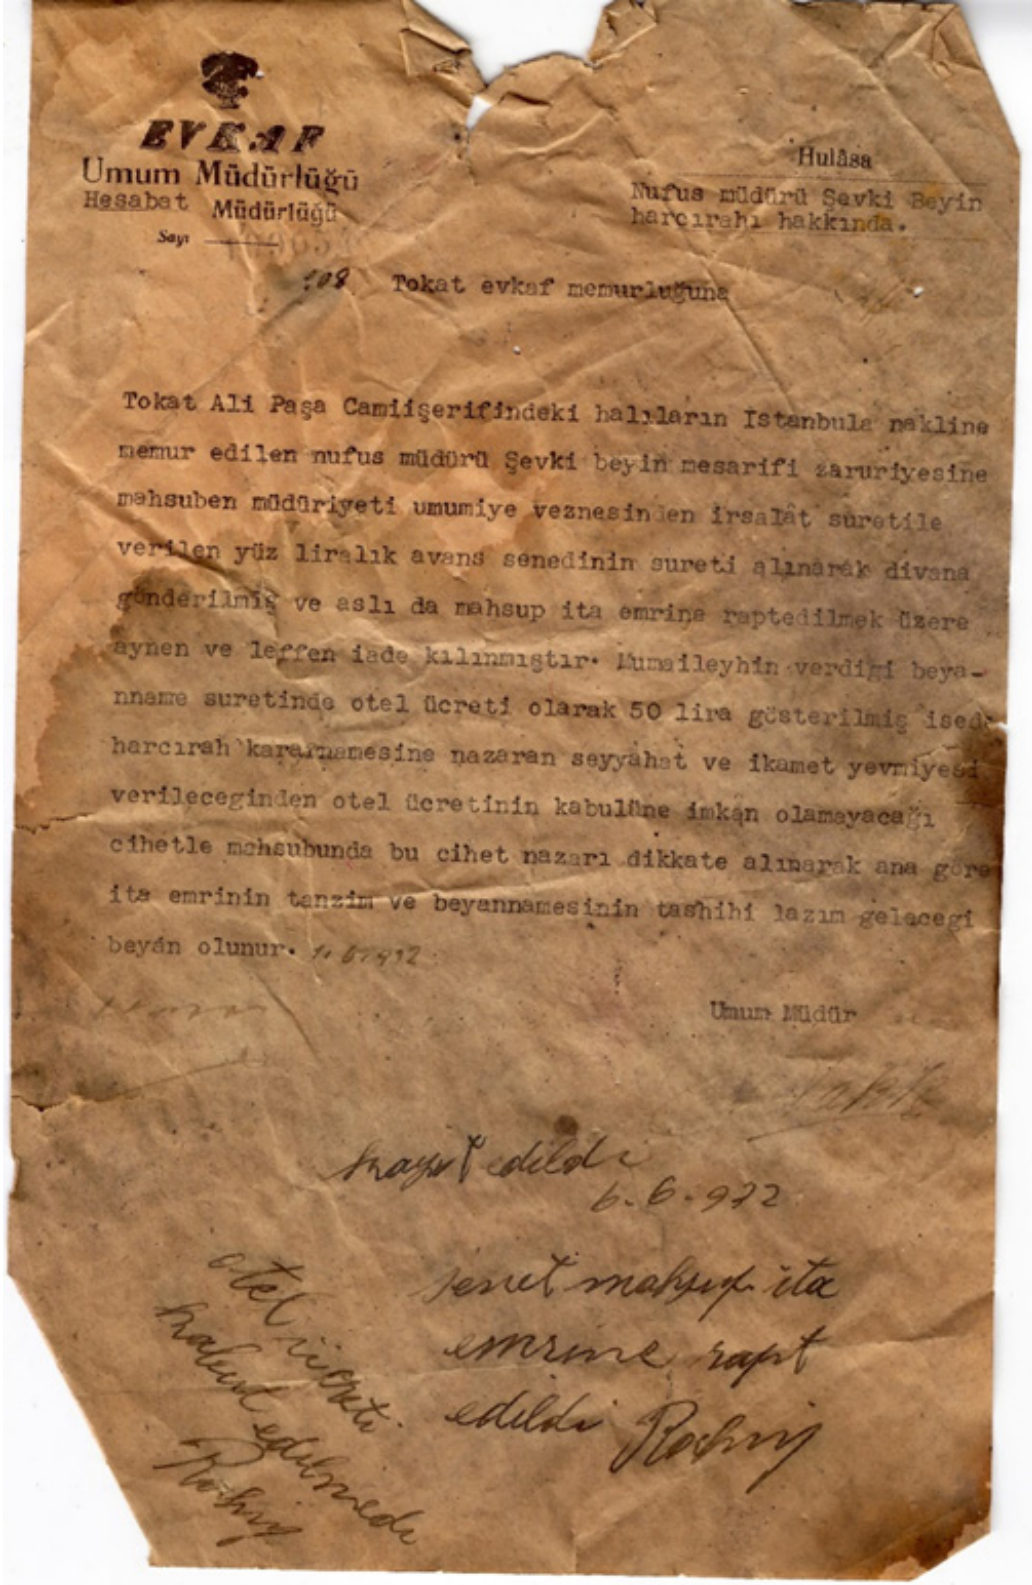 EVKAF
Umum Müdürlüğü
Hesabat Müdürlüğü
Sayı
108
Hulâsa
Nufus müdürü Şevki Beyin
harcırahı hakkında.
Tokat evkaf memurluğuna
Tokat Ali Paşa Camiişerifindeki halıların Istanbula nakline
memur edilen nufus müdürü Şevki beyin mesarifi zaruriyesine
mahsuben müdüriyeti umumiye veznesinden irsalât suretile
verilen yüz liralık avans senedinin sureti alınarak divana
gönderilmiş ve aslı da mahsup ita emrine raptedilmek üzere
aynen ve leffen iade kılınmıştır. Mumaileyhin verdigi beya-
nname suretinde otel ücreti olarak 50 lira gösterilmiş isede
harcırah kararnamesine nazaran seyyahat ve ikamet yevmiyesi
verileceginden otel ücretinin kabulüne imkân olamayacağı
cihetle mahsubunda bu cihet nazarı dikkate alınarak ana göre
ita emrinin tanzim ve beyannamesinin tashihi lazım gelecegi
beyán olunur.
Umum Müdür
kayıt edildi
6.6.932
senet mahsup ita
emrine rapt
edildi
otel ücreti
kabul edilmedi